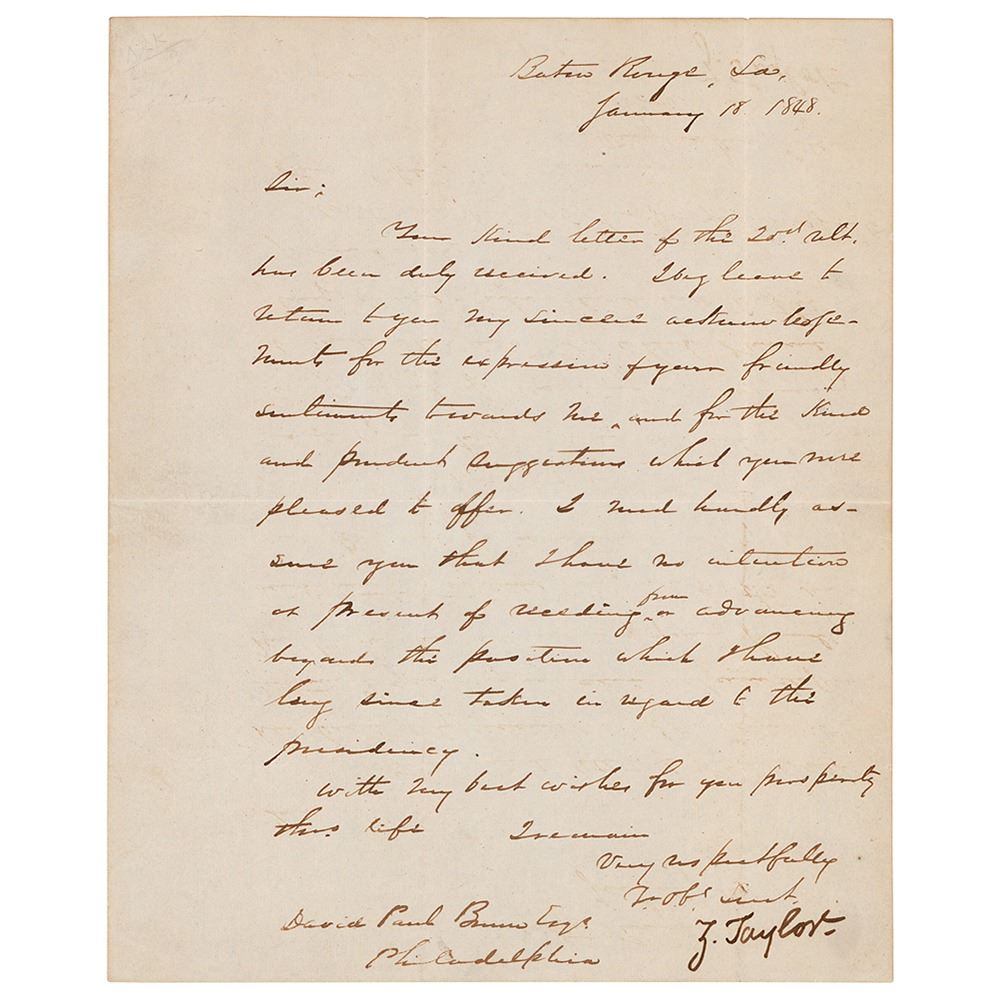 Baton Rouge, La,
January 18 1848.
Sir;
Your kind letter of the 20d. ult.
has been duly received. I beg leave to
return to you my sincere acknowledge-
ments for the expression of your friendly
sentiments towards me, and for the kind
and prudent suggestions which you were
pleased to offer. I need hardly as-
sure you that I have no intention
at present of receding from or advancing
beyond the position which I have
long since taken in regard to the
presidency.
with my best wishes for you prosperity
thro. life I remain
Very respectfully
Yr. Obt. servt.
Z. Taylor
David Paul Brown Esqr.
Philadelphia